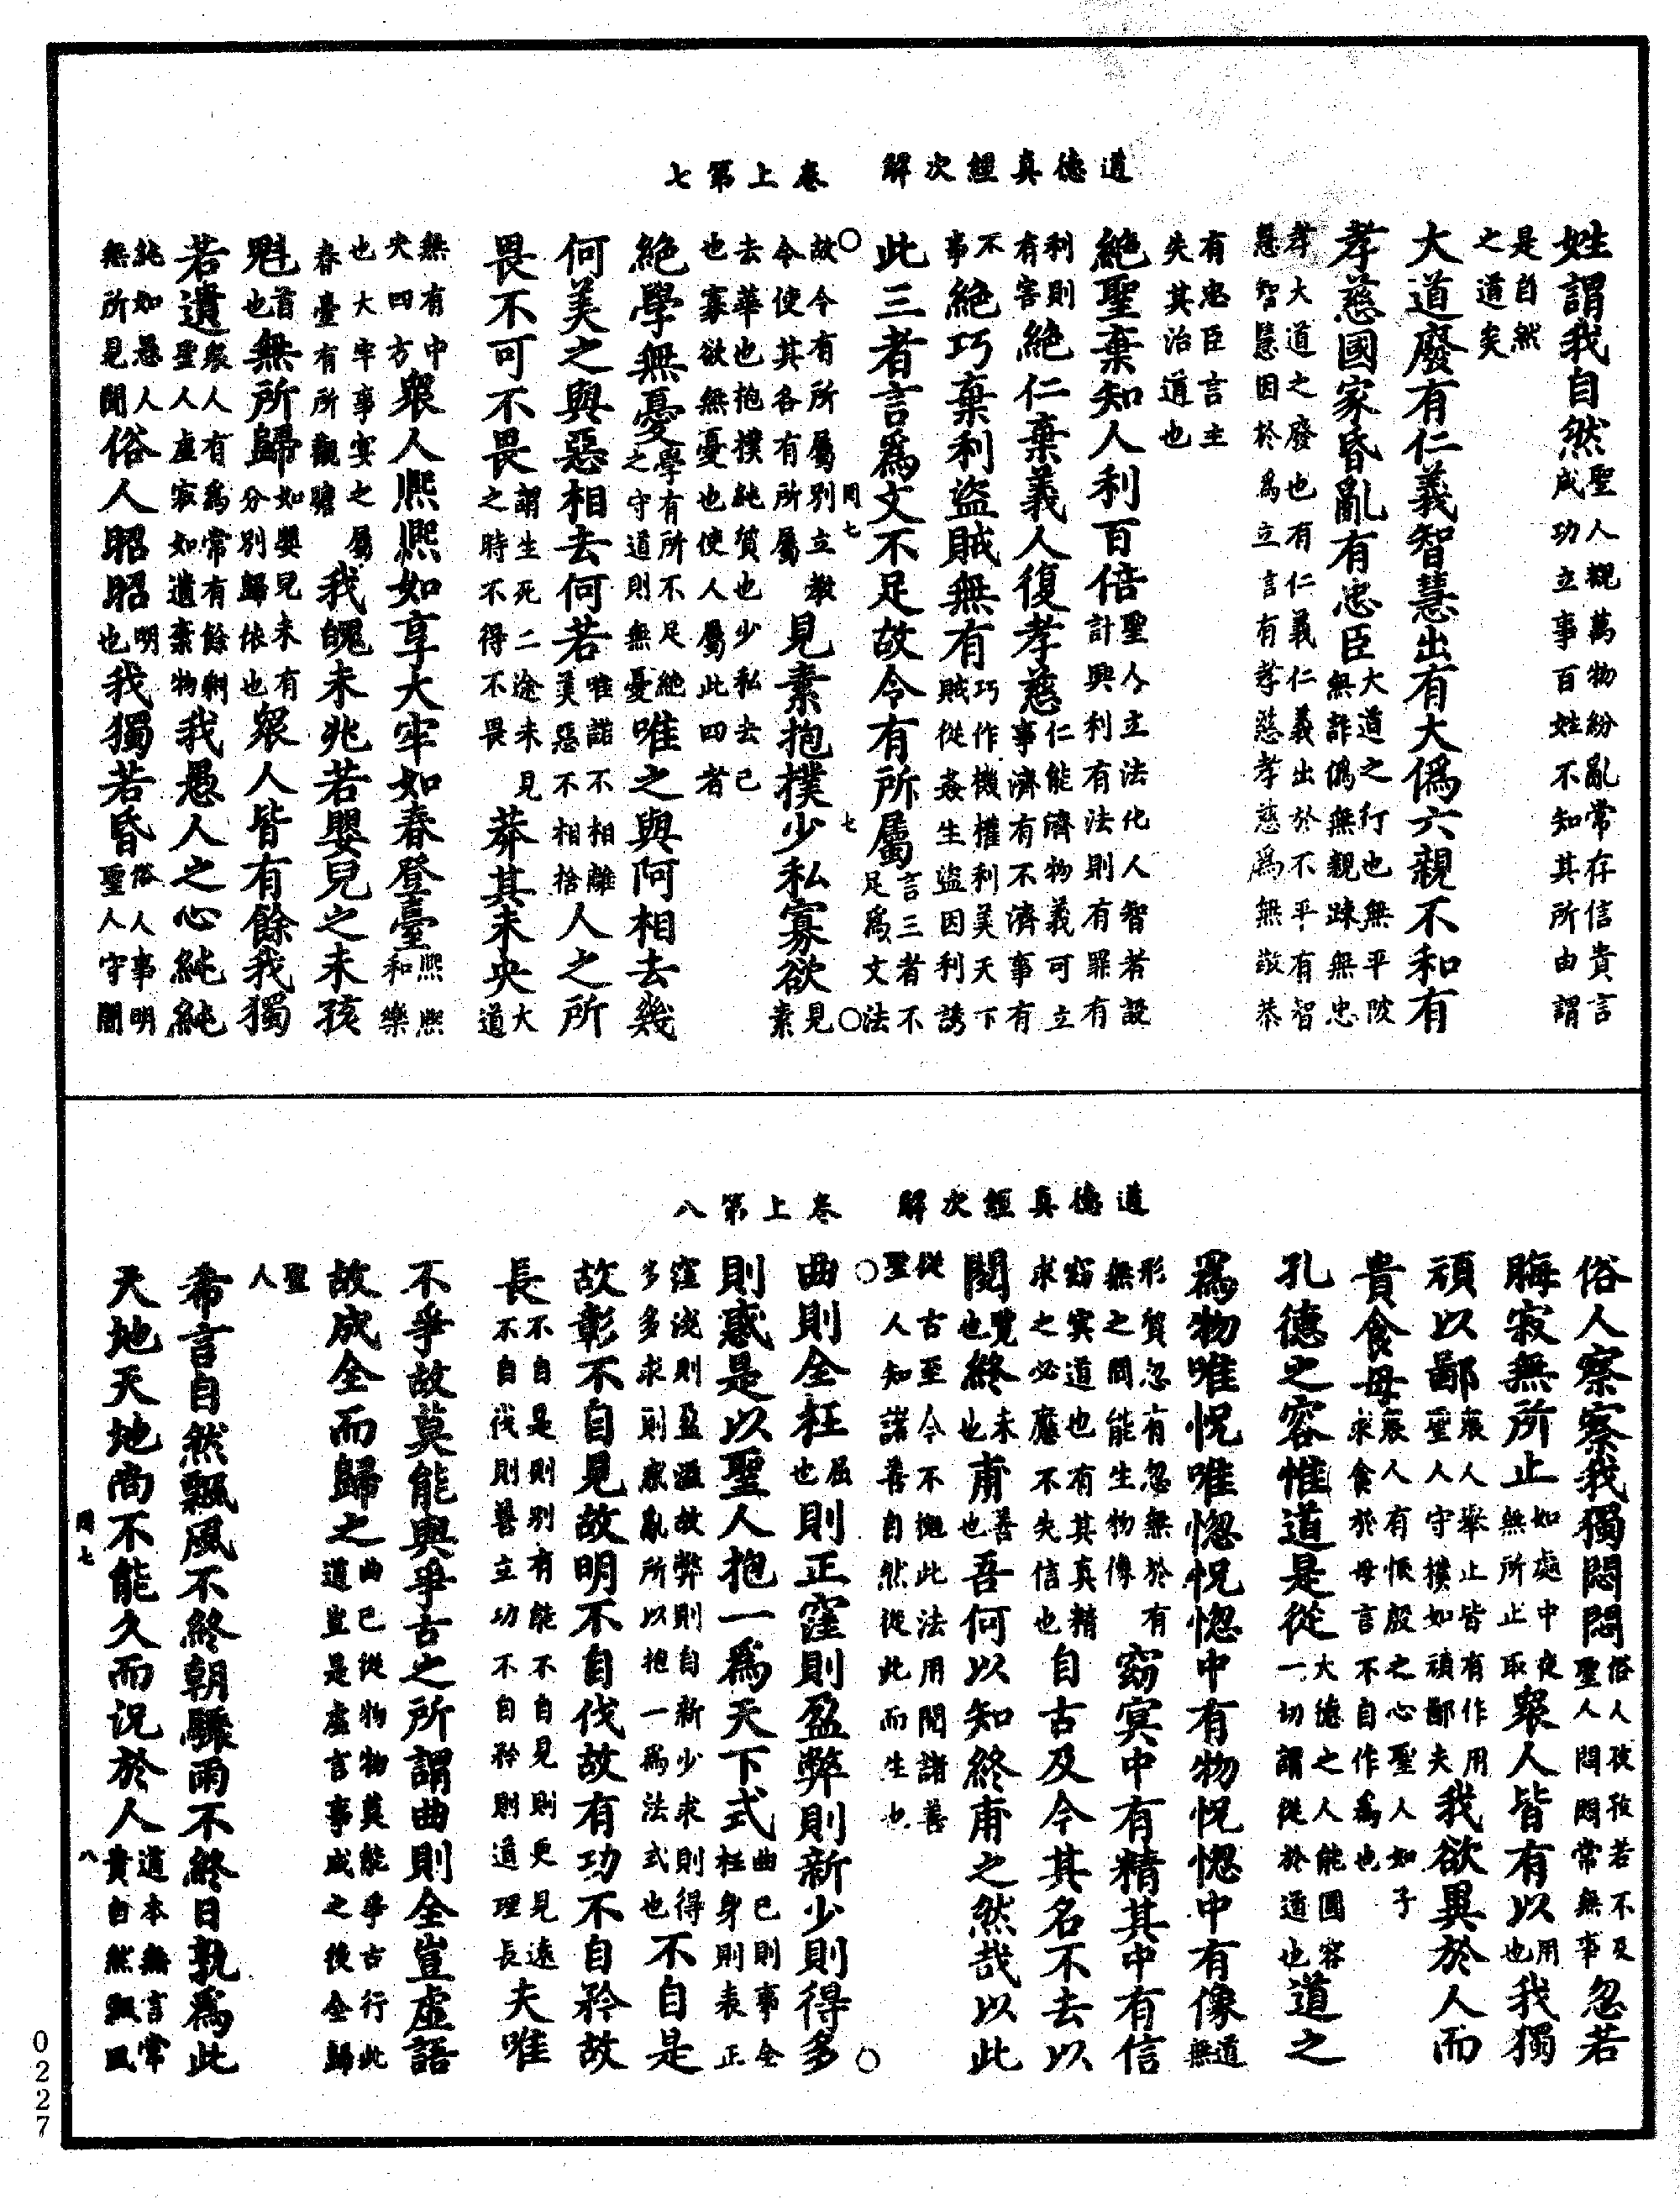 道德真經次解 卷上第七
姓謂我自然聖人觀萬物紛亂常存信貴言成功立事百姓不知其所由謂
是自然之道矣
大道廢有仁義智慧出有大偽六親不和有
孝慈國家昏亂有忠臣大道之行也無平陂無詐偽無親踈無忠
孝大道之廢也有仁義仁義出於不平有智慧智慧因於為立言有孝慈孝慈為無敬恭
有忠臣言主失其治道也
絕聖棄知人利百倍聖人立法化人智若設計興利有法則有罪有
利則有害絕仁棄義人復孝慈仁能濟物義可立事濟有不濟事有
不事絕巧棄利盜賊無有巧作機權利美天下賊從姦生盜因利誘
此三者言為文不足故令有所屬言三者不足為文法
故令有所屬別立教令使其各有所屬見素抱樸少私寡欲見素
去華也抱樸純質也少私去己也寡欲無憂也使人屬此四者
絕學無憂學有所不足絕之守道則無憂唯之與阿相去幾
何美之與惡相去何若唯諾不相離美惡不相捨人之所
畏不可不畏謂生死二途未見之時不得不畏莽其未央大道
無有中央四方衆人熈熈如享大牢如春登臺熈熈和樂
也大牢事宴之屬春臺有所觀瞻我魄未兆若嬰兒之未孩
魁首也無所歸如嬰兒未有分別歸依也衆人皆有餘我獨
若遺衆人有為常有餘剩聖人虛寂如遺棄物我愚人之心純純
純如愚人無所見聞俗人昭昭明也我獨若昏俗人事明聖人守闇
道德真經次解 卷上第八
俗人察察我獨悶悶俗人彼孜若不及聖人悶悶常無事忽若
晦寂無所止如處中夜無所止取衆人皆有以用也我獨
頑以鄙衆人舉止皆有作用聖人守樸如頑鄙夫我欲異於人而
貴食母衆人有恨殷之心聖人如子求食於母言不自作為也
孔德之容惟道是從大德之人能圓容一切謂從於道也道之
為物唯怳唯惚怳惚中有物怳惚中有像道無
形質忽有忽無於有無之間能生物像窈冥中有精其中有信
窈冥道也有其真精求之必應不失信也自古及今其名不去以
閱覽也終末也甫善也吾何以知終甫之然哉以此
從古至今不越此法用閱諸善聖人知諸善自然從此而生也
曲則全枉屈也則正窪則盈弊則新少則得多
則惑是以聖人抱一為天下式曲己則事全枉身則表正
窪淺則盈溢故弊則自新少求則得多多求則衆亂所以抱一為法式也不自是
故彰不自見故明不自伐故有功不自矜故
長不自是則別有能不自見則更見遠不自伐則善立功不自矜則道理長夫唯
不爭故莫能與爭古之所謂曲則全豈虛語
故成全而歸之曲己從物物莫能爭古行此道豈是虛言事成之後全歸
聖人
希言自然飄風不終朝驟雨不終日孰為此
天地天地尚不能久而況於人道本無言常貴自然飄風
0227